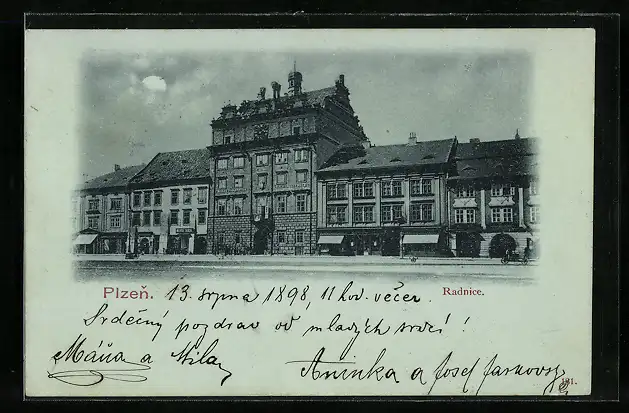 Plzeň. 13. srpna 1898, 11 hod. večer. Radnice.
Srdečný pozdrav od mladých srdcí!
Máňa a Mila,
Aninka a Josef
181.